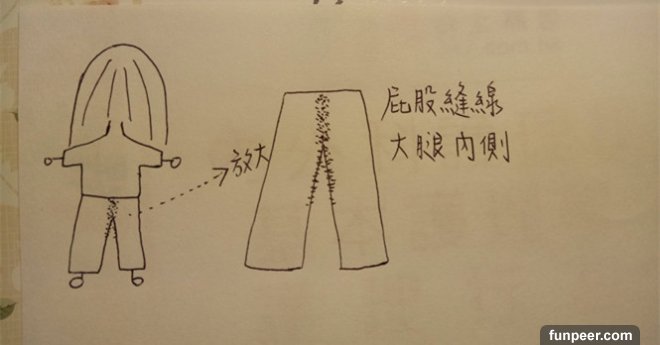 放大
屁股縫線
大腿內側
funpeer.com